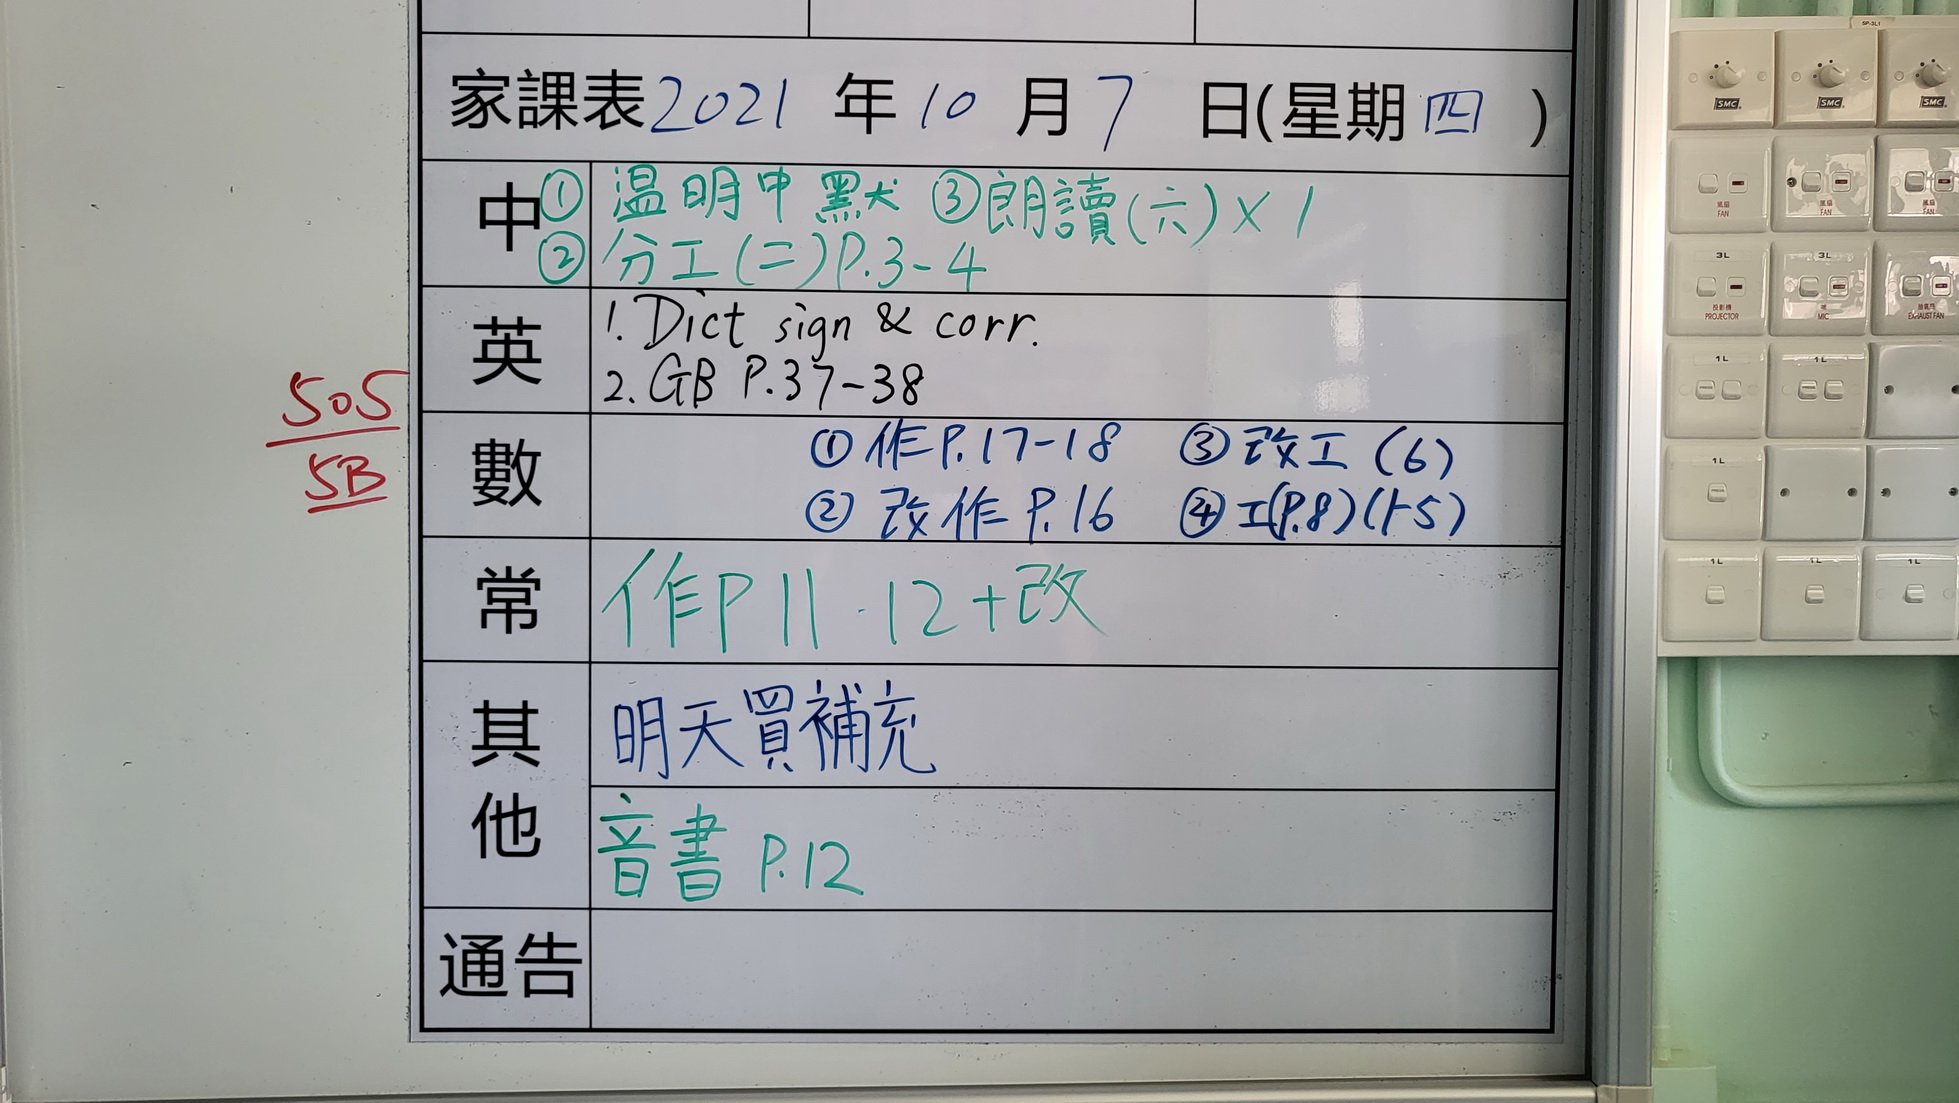 家課表2021年10月7日(星期四)
中 ① 温明中默 ③朗讀(六)×1
② 分工(二)P.3-4
英 1. Dict sign & corr.
2. GB P.37-38
505
5B
數 ①作P.17-18 ③改工(6)
② 改作P.16 ④工(P.8)(1-5)
常 作P 11.12+改
其他 明天買補充
音書 P.12
通告
SP-3L1
SMC SMC SMC
風扇 風扇 風扇
FAN FAN FAN
3L 3L
投影機 抽氣扇
PROJECTOR MIC EXHAUST FAN
1L 1L
1L
1L 1L 1L